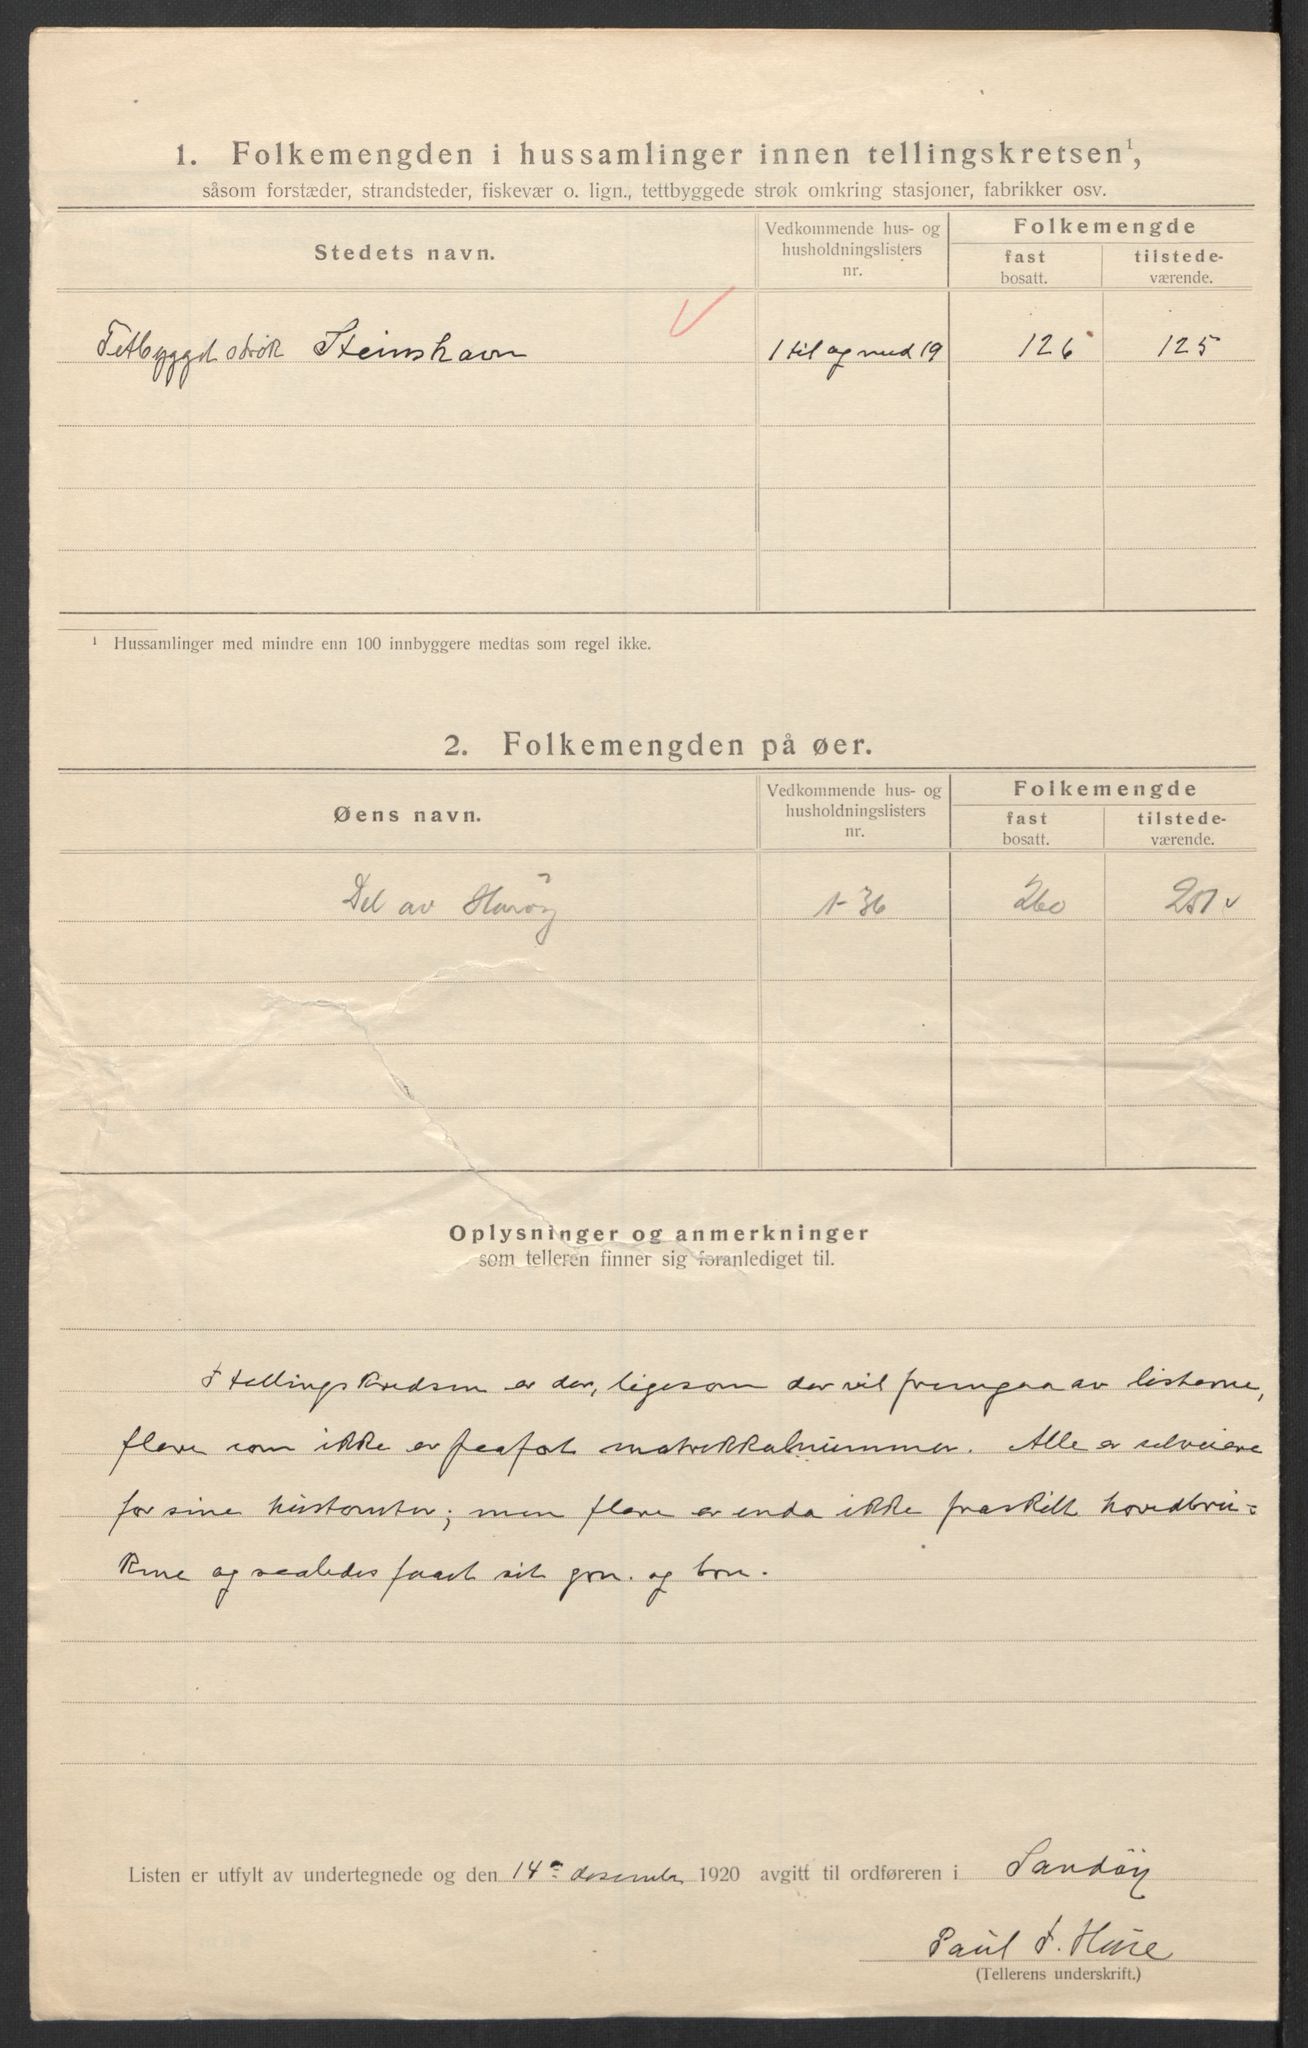 1. Folkemengden i hussamlinger innen tellingskretsen¹,
såsom forstæder, strandsteder, fiskevær o. lign., tettbyggede strøk omkring stasjoner, fabrikker osv.
Stedets navn.
Vedkommende hus- og
husholdningslisters
nr.
Folkemengde
fast
bosatt.
tilstede-
værende.
Tetbyggd strøk Steinshavn 1 til og med 19 126 125
¹ Hussamlinger med mindre enn 100 innbyggere medtas som regel ikke.
2. Folkemengden på øer.
Øens navn.
Vedkommende hus- og
husholdningslisters
nr.
Folkemengde
fast
bosatt.
tilstede-
værende.
Del av Harøy 1-36 260 251
Oplysninger og anmerkninger
som telleren finner sig foranlediget til.
I tellingskredsen er der, ligesom der vil fremgaa av listerne,
flere som ikke er paaført matrikkelnummer. Alle er selveiere
for sine hustomter; men flere er enda ikke fraskilt hovedbru-
kene og saaledes faaet sit grn. og brn.
Listen er utfylt av undertegnede og den 14de desember 1920 avgitt til ordføreren i Sandøy
Paul F. Huse
(Tellerens underskrift.)